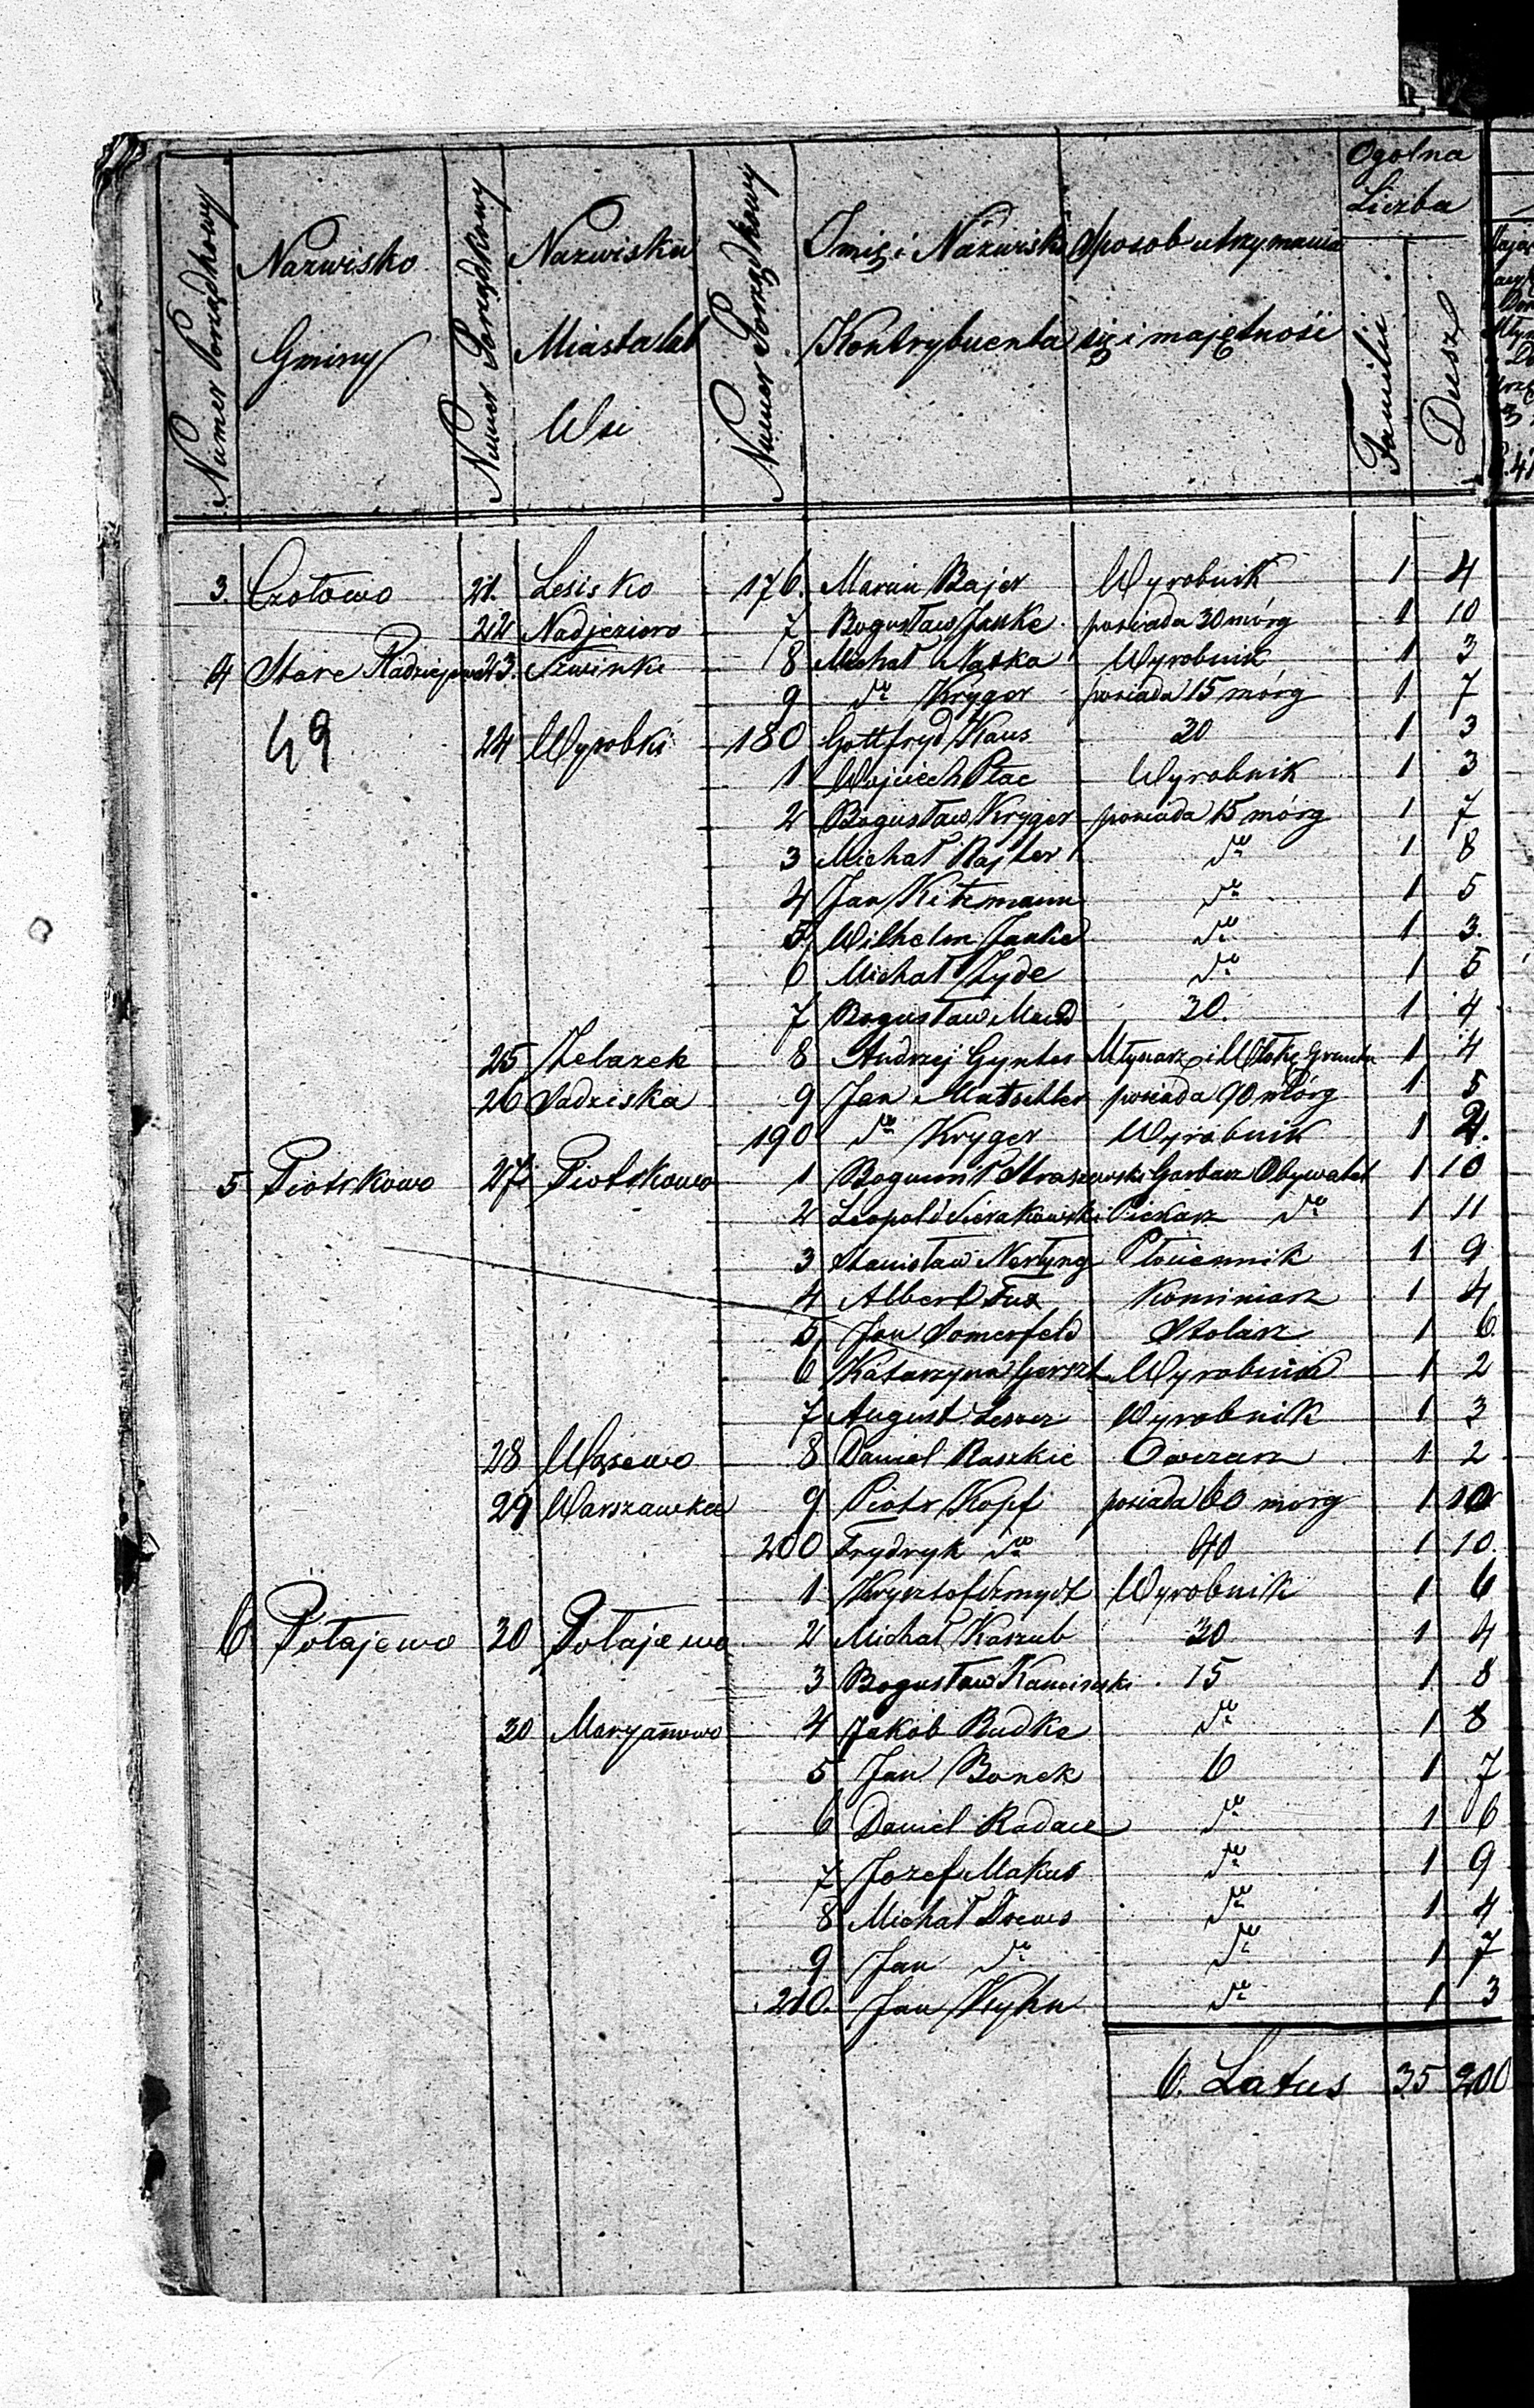 Numer Porządkowy
Nazwisko
Gminy
Numer Porządkowy
Nazwisko
Miasta lub
Wsi
Numer Porządkowy
Imię i Nazwisko
Kontrybuenta
Sposob utrzymania
się i majętności
Ogolna
Liczba
Familii
Dusz
3. Czołowo 21. Lesisko 176. Marcin Bajer Wyrobnik 1 4
22 Nadjezioro 7 Bogusław Janke posiada 30 mórg 1 10
4 Stare Radziejewo 23. 8 Michał Natka Wyrobnik 1 3
9 do Kryger posiada 15 mórg 1 7
49 24 Wyrobki 180 Gottfryd Klaus 30 1 3
1 Wojciech Ptac Wyrobnik 1 3
2 Bogusław Kryger posiada 15 mórg 1 7
3 Michał Rajter do 1 8
4 Jan Kitzmann do 1 5
5 Wilhelm Janke do 1 3.
6 Michał Zyde do 1 5
7 Bogusław 30. 1 4
25 Żelazek 8 Andrzej Gynter Młynarz i Włokę Gruntu 1 4
26 Sadziska 9 Jan posiada 90 mórg 1 5
190 do Kryger Wyrobnik 1 2.
5 Piotrkowo 27. Piotrkowo 1 Bogumił Straszewski Garbarz Obywatel 1 10
2 Leopold Sierakowski Piekarz do 1 11
3 Stanisław Nertyng Płóciennik 1 9
4 Albert Fux Kominiarz 1 4
5 Jan Somerfeld Stolarz 1 6
6 Katarzyna Gerszt Wyrobnica 1 2
7 August Leszer Wyrobnik 1 3
28 Wąsewo 8 Daniel Raszkie Owczarz 1 2
29 Warszawka 9 Piotr Kopf posiada 60 morg 1 10
200 Frydryk do 60 1 10
1 Krysztof Szmydt Wyrobnik 1 6
6 Połajewo 30 Połajewo 2 Michał Kaszub 30 1 4
3 Bogusław Kamiński 15 1 8
30 Maryanowo 4 Jakób Budke do 1 8
5 Jan Bonek 6 1 7
6 Daniel Radace do 1 6
7 Jozef Makus do 1 9
8 Michał Drews do 1 4
9 Jan do do 1 7
210. Jan Kyhn do 1 3
6. Latus 35 200